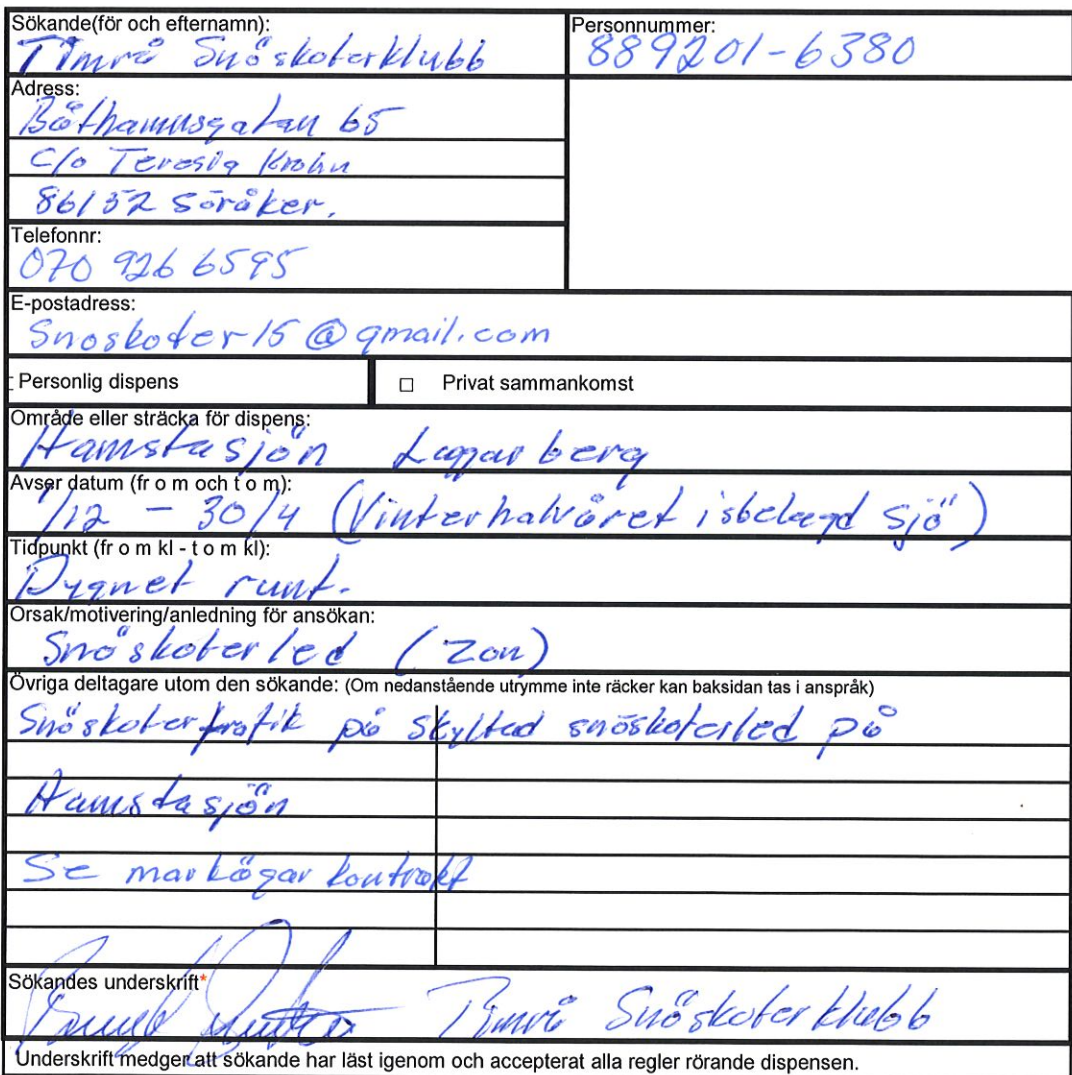 Sökande(för och efternamn):
Timrå Snöskoterklubb
Personnummer:
889201-6380
Adress:
Båthamnsgatan 65
C/o Teresia Krohn
86152 Söråker.
Telefonnr:
070 926 6595
E-postadress:
Snoskoter15@gmail.com
Personlig dispens
□ Privat sammankomst
Område eller sträcka för dispens:
Hamstasjön Laggarberg
Avser datum (fr o m och t o m):
1/12 - 30/4 (Vinterhalvåret isbelagd sjö)
Tidpunkt (fr o m kl - t o m kl):
Dygnet runt.
Orsak/motivering/anledning för ansökan:
Snöskoterled (Zon)
Övriga deltagare utom den sökande: (Om nedanstående utrymme inte räcker kan baksidan tas i anspråk)
Snöskotertrafik på skyltad snöskoterled på
Hamstasjön
Se markägarkontrakt
Sökandes underskrift*
Timrå Snöskoterklubb
Underskrift medger att sökande har läst igenom och accepterat alla regler rörande dispensen.